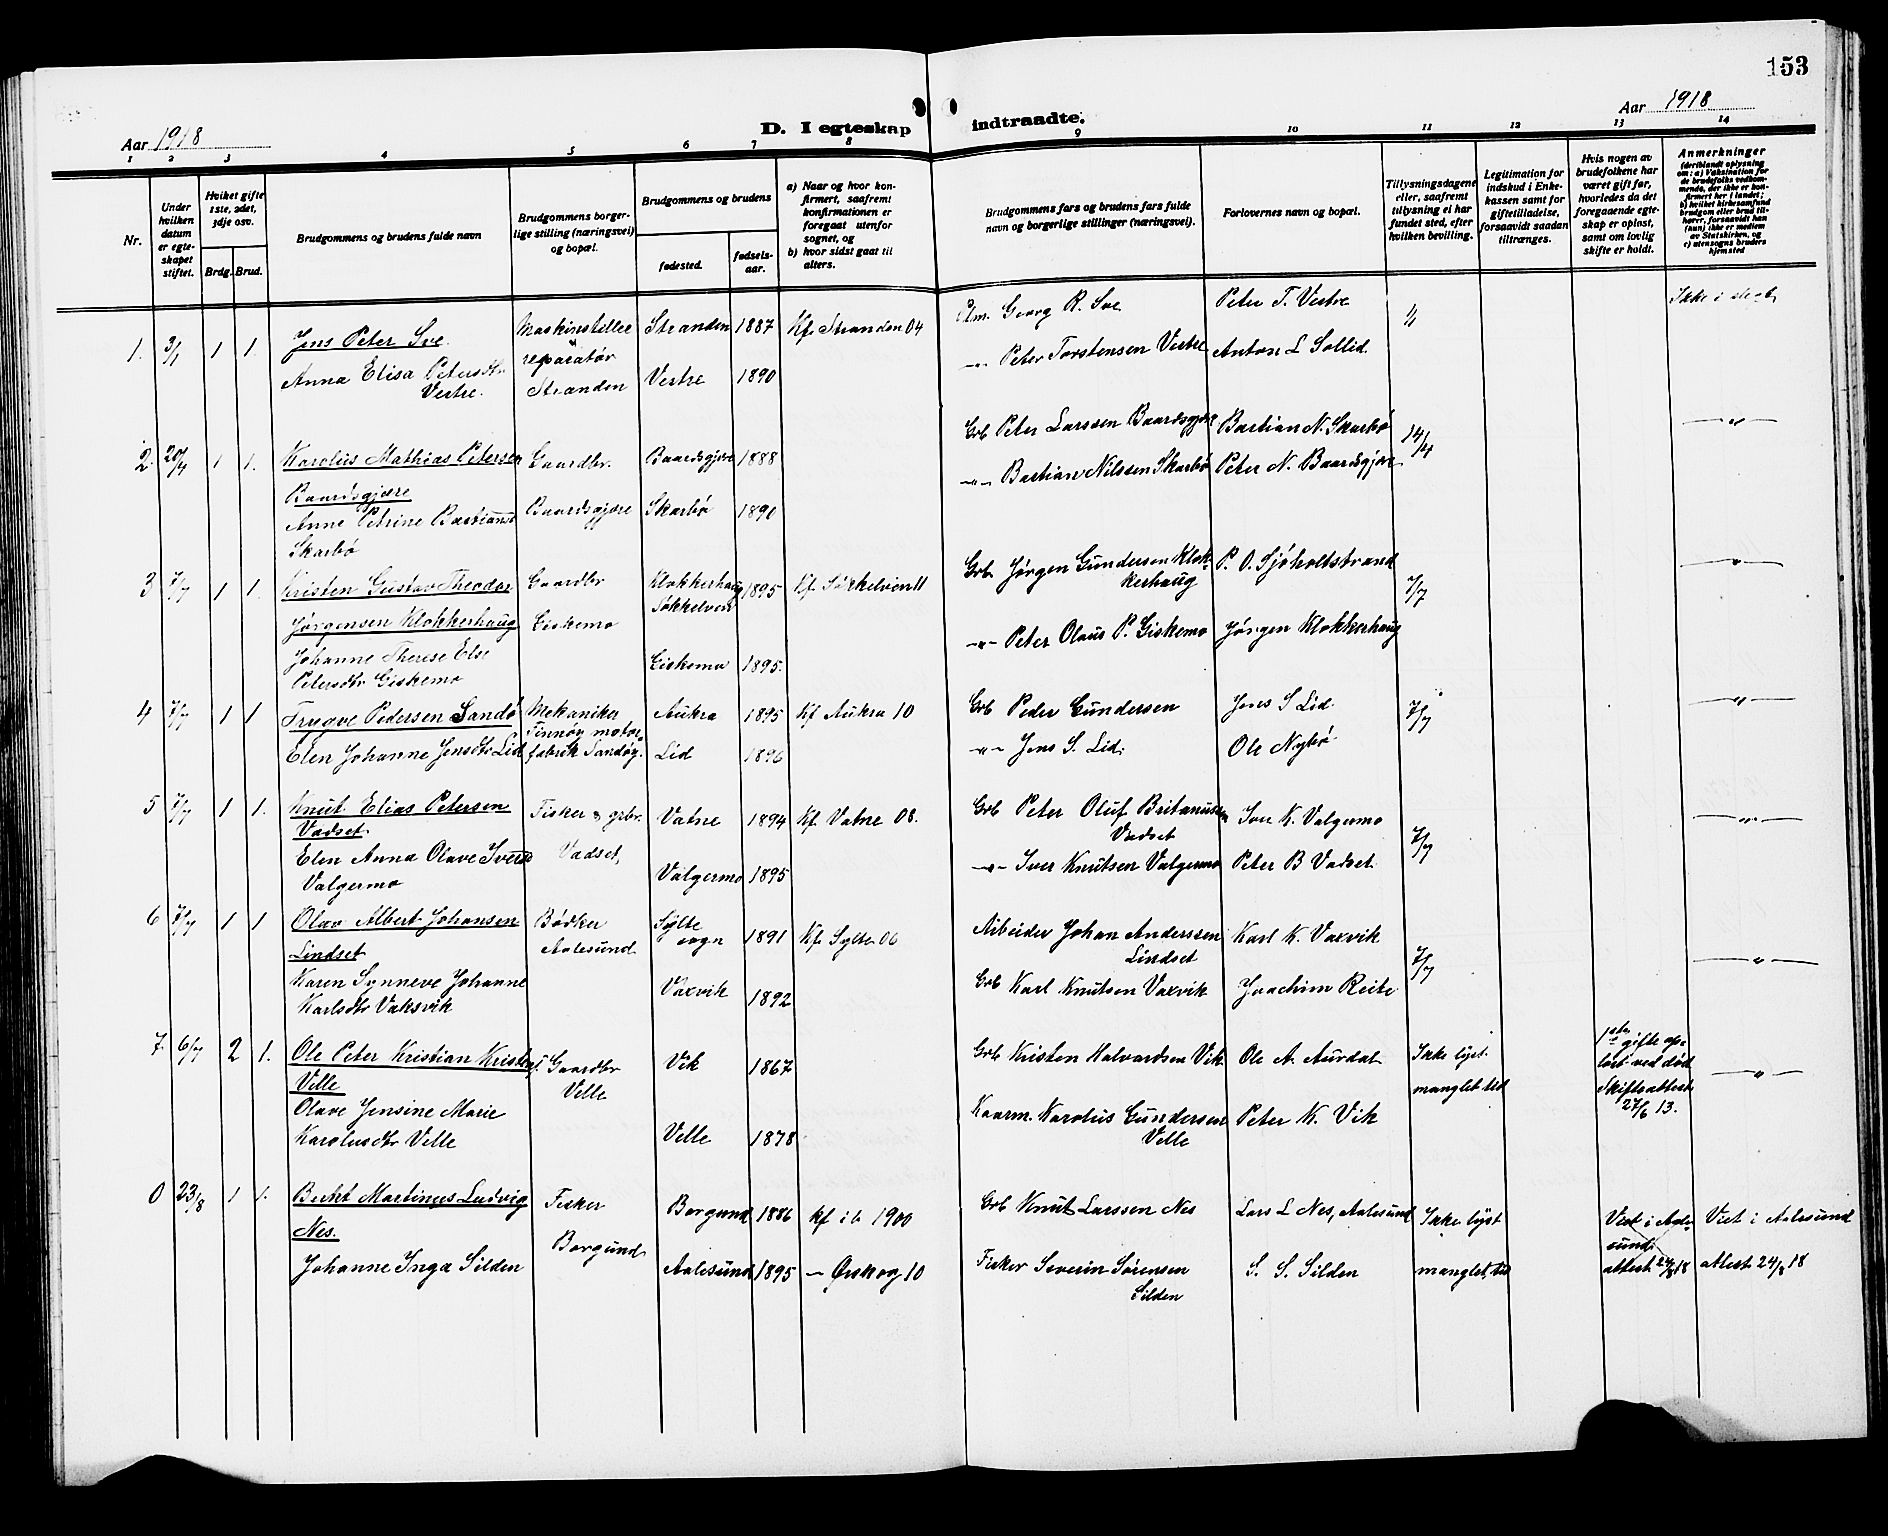 153
Aar 1918
D. I egteskap indtraadte.
Aar 1918
1 2 3 4 5 6 7 8 9 10 11 12 13 14
Nr.
Under hvilken datum er egteskapet stiftet.
Hvilket gifte 1ste, 2det, 3dje osv.
Brdg. Brud.
Brudgommens og brudens fulde navn
Brudgommens borgerlige stilling (næringsvei) og bopæl.
Brudgommens og brudens
fødested.
fødselsaar.
a) Naar og hvor konfirmert, saafremt konfirmationen er foregaat utenfor sognet, og
b) hvor sidst gaat til alters.
Brudgommens fars og brudens fars fulde navn og borgerlige stillinger (næringsvei).
Forlovernes navn og bopæl.
Tillysningsdagene eller, saafremt tillysning ei har fundet sted, efter hvilken bevilling.
Legitimation for indskud i Enkekassen samt for giftetilladelse, forsaavidt saadan tiltrænges.
Hvis nogen av brudefolkene har været gift før, hvorledes da det foregaaende egteskap er opløst, samt om lovlig skifte er holdt.
Anmerkninger
(deriblandt oplysning om: a) Vaksination for de brudefolks vedkommende, der ikke er konfirmert her i landet; b) hvilket kirkesamfund brudgom eller brud tilhører, forsaavidt han (hun) ikke er medlem av Statskirken, og c) utensogns bruders hjemsted
1. 3/1 1 1. Jens Peter Sve.
Anna Elisa Petersdtr
Vestre.
Maskinstiller
reparatør
Stranden
Stranden 1887 Kf. Stranden 04
Vestre 1890
Georg R. Sve
-"- Peter Torstensen Vestre
Peter T. Vestre
Anton L Sollid.
Ikke i slegt
2. 20/4 1 1. Karolus Mathias Petersen
Baardsgjære
Anne Petrine Bastiansd
Skarbø
Gaardbr.
Baardsgjære
Baardsgjære 1888
Skarbø 1890
Grb Peter Larssen Baardsgjære
-"- Bastian Nilssen Skarbø
Bastian N. Skarbø
Peter N. Baardsgjære
14/4
—"—
3 7/7 1 1. Kristen Gustav Theodor
Jørgensen Klokkerhaug
Johanne Therese Else
Petersdtr Giskemo
Gaardbr
Giskemo
Klokkerhaug
Søkkelven 1895 Kf. Søkkelven 11
Giskemo 1895.
Grb. Jørgen Gundersen Klok-
kerhaug
-"- Peter Olaus P. Giskemo
P. O. Sjøholtstrand
Jørgen Klokkerhaug
7/7
—"—
4 7/7 1 1 Trygve Pedersen Sandø
Elen Johanne Jensdtr Lid
Mekaniker
Finnøy motor
fabrik Sandøy.
Aukra 1895 Kf Aukra 10
Lid 1896
Grb Peder Gundersen
-"- Jens S. Lid.
Jens S Lid.
Ole Nybø
7/7
—"—
5 7/7 1 1. Knut Elias Petersen
Vadset
Elen Anna Olave Iversd
Valgermo
Fisker & grbr.
Vadset,
Vatne 1894 Kf. Vatne 08.
Valgermo 1895
Grb Peter Oluf Britanusen
Vadset
-"- Iver Knutsen Valgermo
Iver K. Valgermo
Peter B Vadset.
7/7
—"—
6 7/7 1 1 Olav Albert Johansen
Lindset
Karen Synneve Johanne
Karlsdtr Vaksvik
Bødker
Aalesund
Sylte
sogn 1891 Kf. Sylte 06
Vaxvik 1892
Arbeider Johan Anderssen
Lindset
Grb Karl Knutsen Vaxvik
Karl K. Vaxvik
Joachim Reite
7/7
—"—
7. 6/7 2 1. Ole Peter Kristian Kristens.
Velle
Olave Jensine Marie
Karolusdtr Velle
Gaardbr
Velle
Vik 1867
Velle 1878
Grb Kristen Halvardsen Vik
Kaarm. Karolus Gundersen
Velle
Ole A. Aurdal
Peter K. Vik
Ikke lyst.
manglet tid
1ste gifte op-
løst ved død
Skifteattest
27/6 13.
—"—
23/8 1 1. Martinus Ludvig
Nes.
Johanne Inga Silden
Fisker
Borgund
Borgund 1886 Kf i 1900
Aalesund 1895 - Ørskog 10
Grb Knut Larssen Nes
Fisker Severin Sørensen
Silden
Lars L Nes, Aalesund
S. S. Silden
Ikke lyst
manglet tid
Viet i Aale-
sund.
attest 24/8 18
Viet i Aalesund
attest 24/8 18